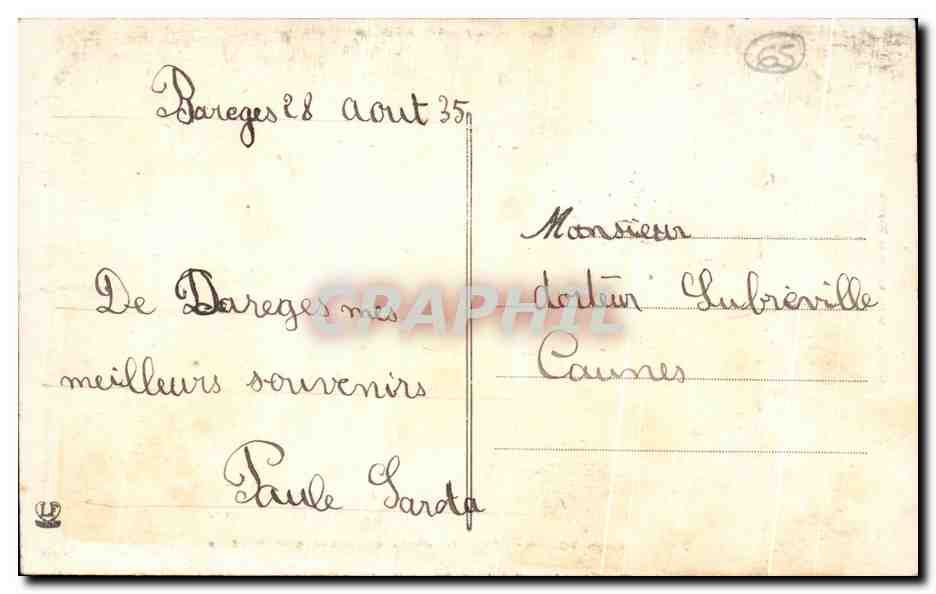 65
Bareges 28 aout 35
De Bareges mes
meilleurs souvenirs
Paule Sarda
Monsieur
docteur Lubrèville
Caunes
CRAPHIL
LF